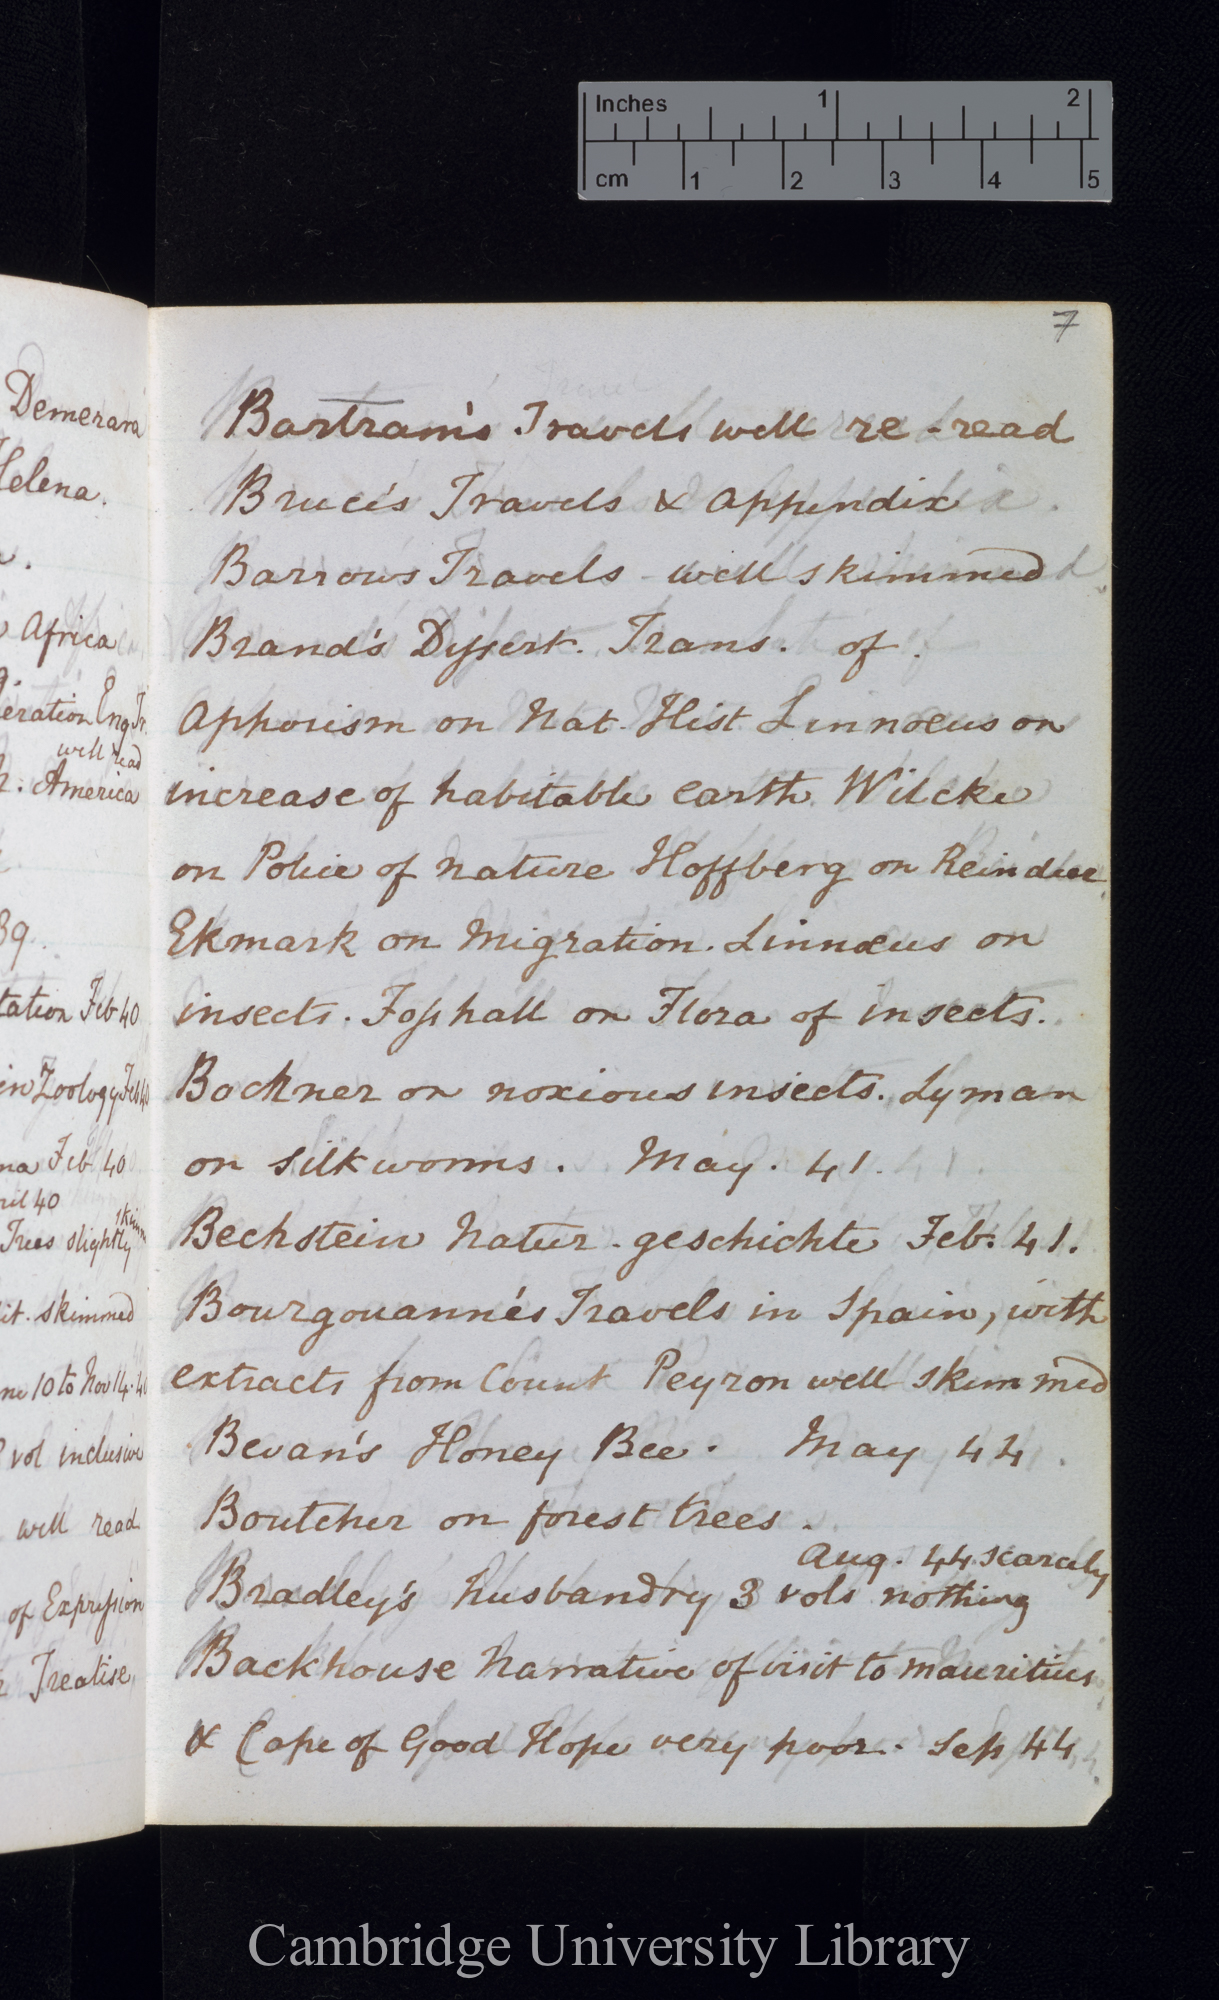 Inches 1 2
cm 1 2 3 4 5
Demerara
Helena.
Africa
eration Eng Tr.
well read
America
39.
tation Feb 40
in Zoology Feb 40
na Feb. 40
ril 40
skimm
Trees slightly
it. skimmed
ne 10 to Nov 14. 40
vol inclusive
well read
of Expression
Treatise
7
Bartram's Travels well re-read
Bruce's Travels & appendix
Barrow's Travels well skimmed
Brand's Dissert. Trans. of
Aphorism on Nat. Hist Linnæus on
increase of habitable earth Wilcke
on Police of nature Hoffberg on Reindeer
Ekmark on Migration. Linnæus on
insects. Fosshall on Flora of insects.
Bockner on noxious insects. Lyman
on silkworms. May. 41.
Bechstein Natur-geschichte Feb: 41.
Bourgouanne's Travels in Spain, with
extracts from Count Peyron well skimmed
Bevan's Honey Bee. May 44
Boutcher on forest trees.
Aug. 44 scarcely
Bradley's husbandry 3 vols nothing
Backhouse Narrative of visit to Mauritius
& Cape of Good Hope very poor. Sep 44
Cambridge University Library